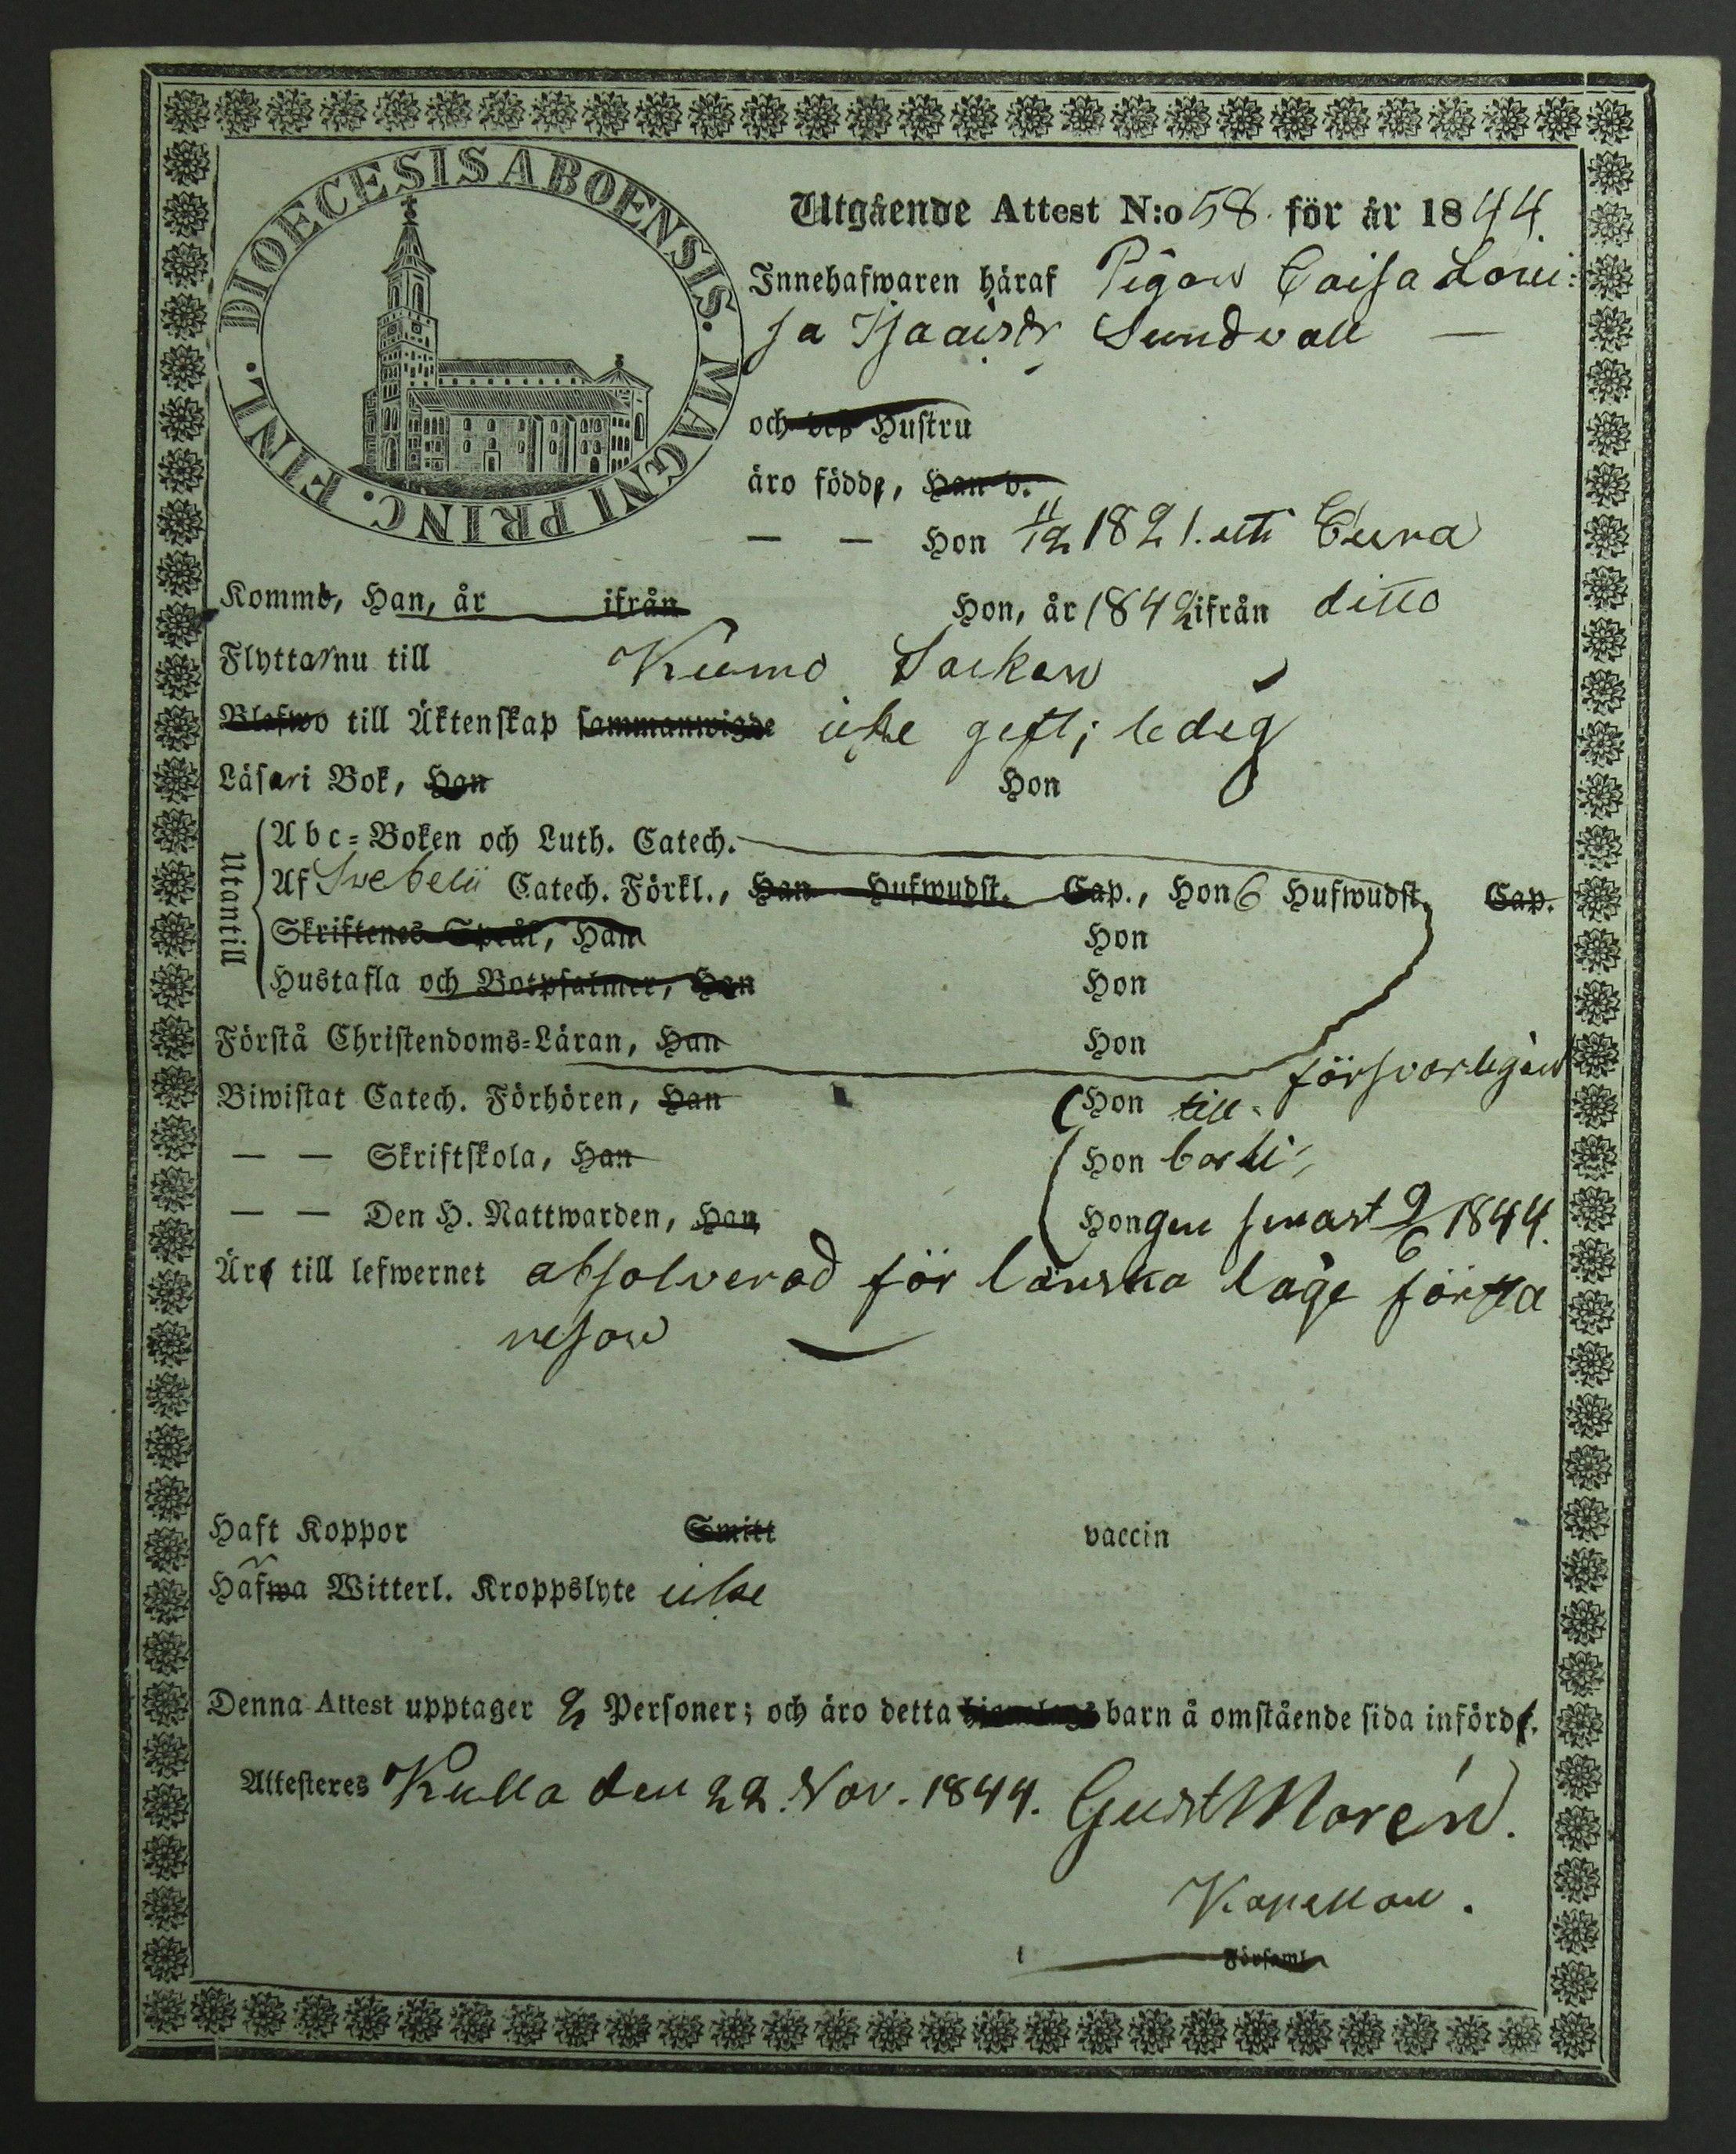 DIOECESIS ABOENSIS. MAGNI PRINC. FINL.
Utgående Attest N:o 58. för år 1844.
Innehafwaren häraf Pigan Caisa Loui:
sa Isaacsdr Sundvall —
och deß Hustru
äro födde, Han d.
— — Hon 11/12 1821. uti Eura
Komme, Han, år ifrån Hon, år 1842 ifrån ditto
Flyttar nu till Kumo Socken
Blefwo till Äktenskap sammanwigde icke gift; ledig
Läser i Bok, Han Hon
Utantill
Abc-Boken och Luth. Catech.
Af Svebelii Catech. Förkl., Han Hufwudst. Cap., Hon 6 Hufwudst. Cap.
Skriftenes Språk, Han Hon
Hustafla och Botpsalmer, Han Hon
Förstå Christendoms-Läran, Han Hon försvarligen
Biwistat Catech. Förhören, Han Hon till-
— — Skriftskola, Han Hon börli-
— — Den H. Nattwarden, Han Hon gen senast 9/6 1844.
Äro till lefwernet absolverad för lönska läge första
resan
Haft Koppor Smitt vaccin
Hafwa Witterl. Kroppslyte icke
Denna Attest upptager 2 Personer; och äro detta hjonelags barn å omstående sida införde.
Attesteres Kulla den 22. Nov. 1844. Gust Morén.
Kapellan.
Församl.